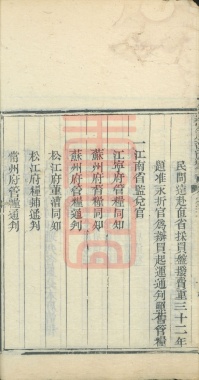 民間遠赴直省採買盤撥費重三十二年
題准永折官為辦買起運通判
一江南省監兌官
江寧府管糧同知
蘇州府督糧同知
蘇州府管糧通判
松江府董漕同知
松江府糧鋪通判
常州府管糧通判